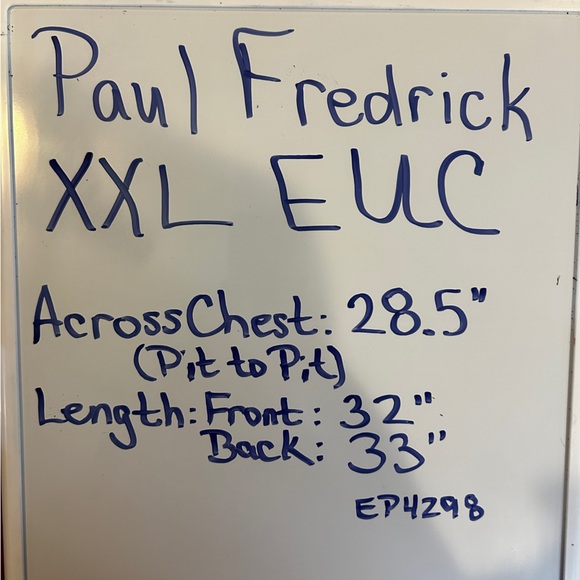 Paul Fredrick
XXL EUC
Across Chest: 28.5"
(Pit to Pit)
Length: Front: 32"
Back: 33"
EP4298